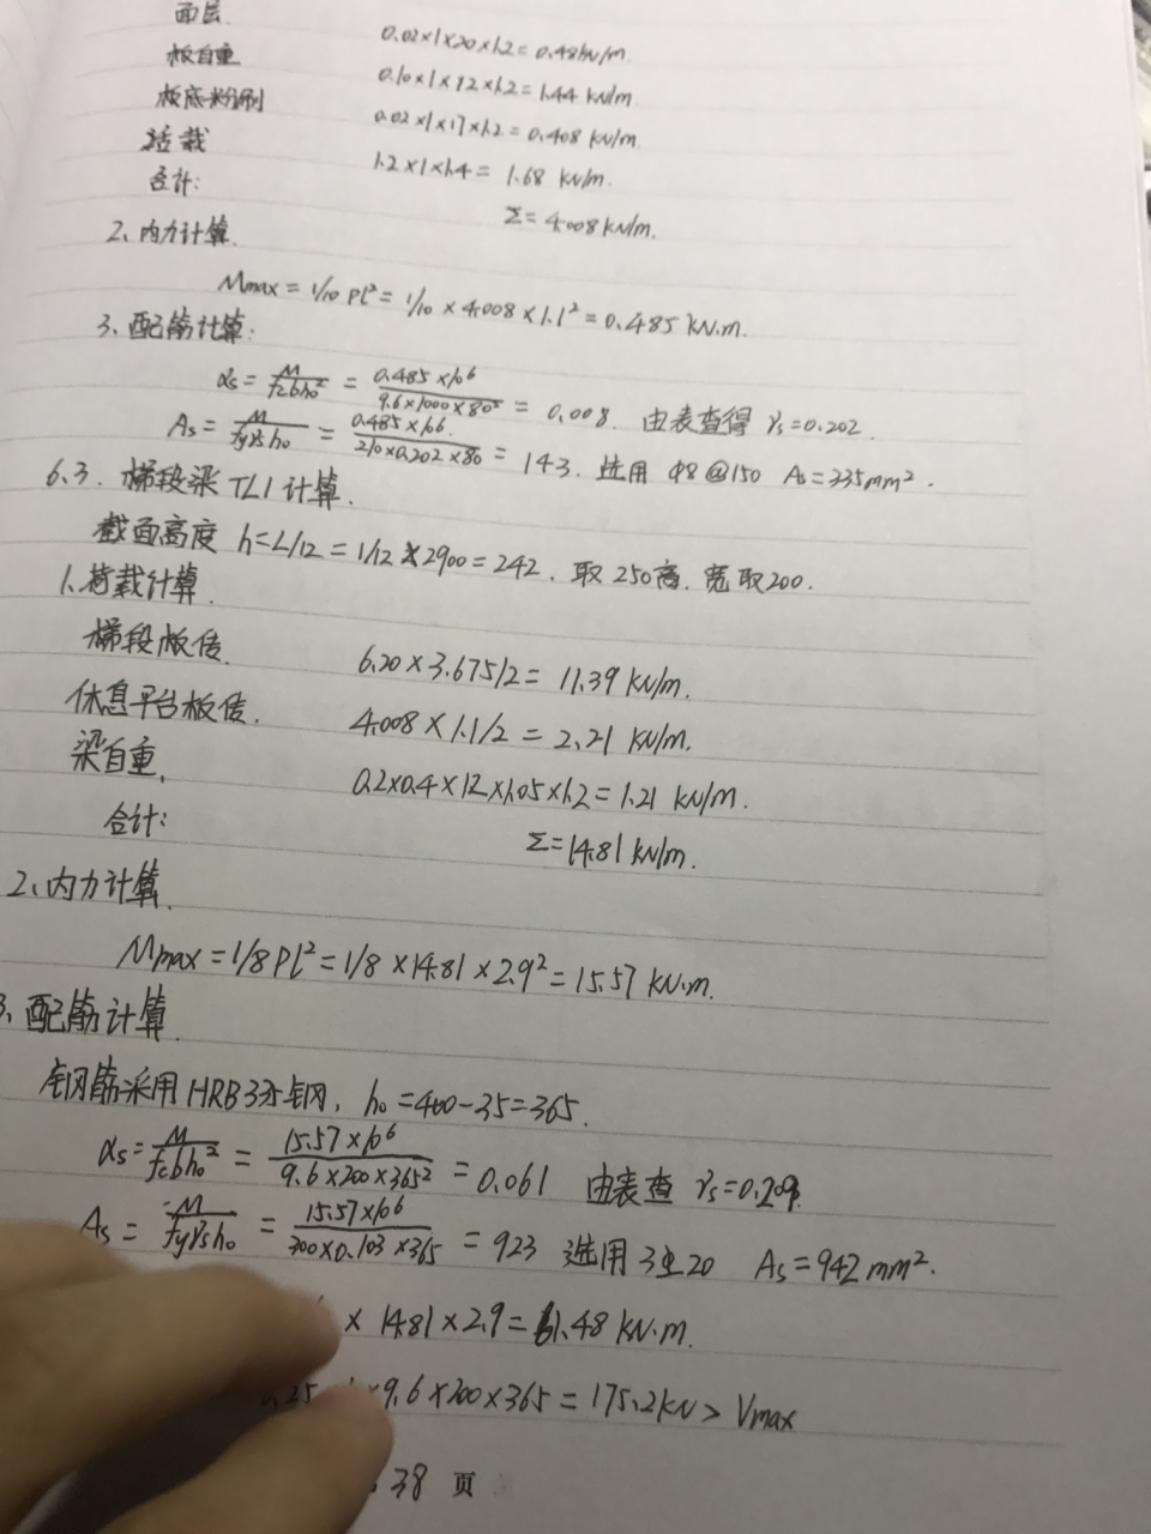 面层 0.02×1×20×1.2=0.48kN/m.
板自重 0.10×1×12×1.2=1.44 kN/m
板底粉刷 0.02×1×17×1.2=0.408 kN/m
活载 1.2×1×1.4= 1.68 kN/m.
合计: Σ=4.008kN/m.
2、内力计算.
Mmax=1/10 Pl²=1/10×4.008×1.1²=0.485kN.m.
3、配筋计算:
αs=M/fcbh₀²=0.485×10⁶/9.6×1000×80²=0.008. 由表查得 γs=0.202.
As=M/fyγsh₀=0.485×10⁶/210×0.202×80=143. 选用 φ8@150 As=335mm².
6.3. 梯段梁TL1计算.
截面高度 h=L/12=1/12×2900=242. 取250高. 宽取200.
1、荷载计算.
梯段板传. 6.20×3.675/2=11.39 kN/m.
休息平台板传. 4.008×1.1/2=2.21 kN/m.
梁自重. 0.2×0.4×12×1.05×1.2=1.21 kN/m.
合计: Σ=14.81kN/m.
2、内力计算.
Mmax=1/8Pl²=1/8×14.81×2.9²=15.57 kN.m.
3、配筋计算.
钢筋采用HRB335钢, h₀=400-35=365.
αs=M/fcbh₀²=15.57×10⁶/9.6×200×365²=0.061 由表查 γs=0.209.
As=M/fyγsh₀=15.57×10⁶/300×0.103×365=923 选用3Φ20 As=942mm².
×14.81×2.9=61.48 kN.m.
×9.6×200×365=175.2kN>Vmax
38 页